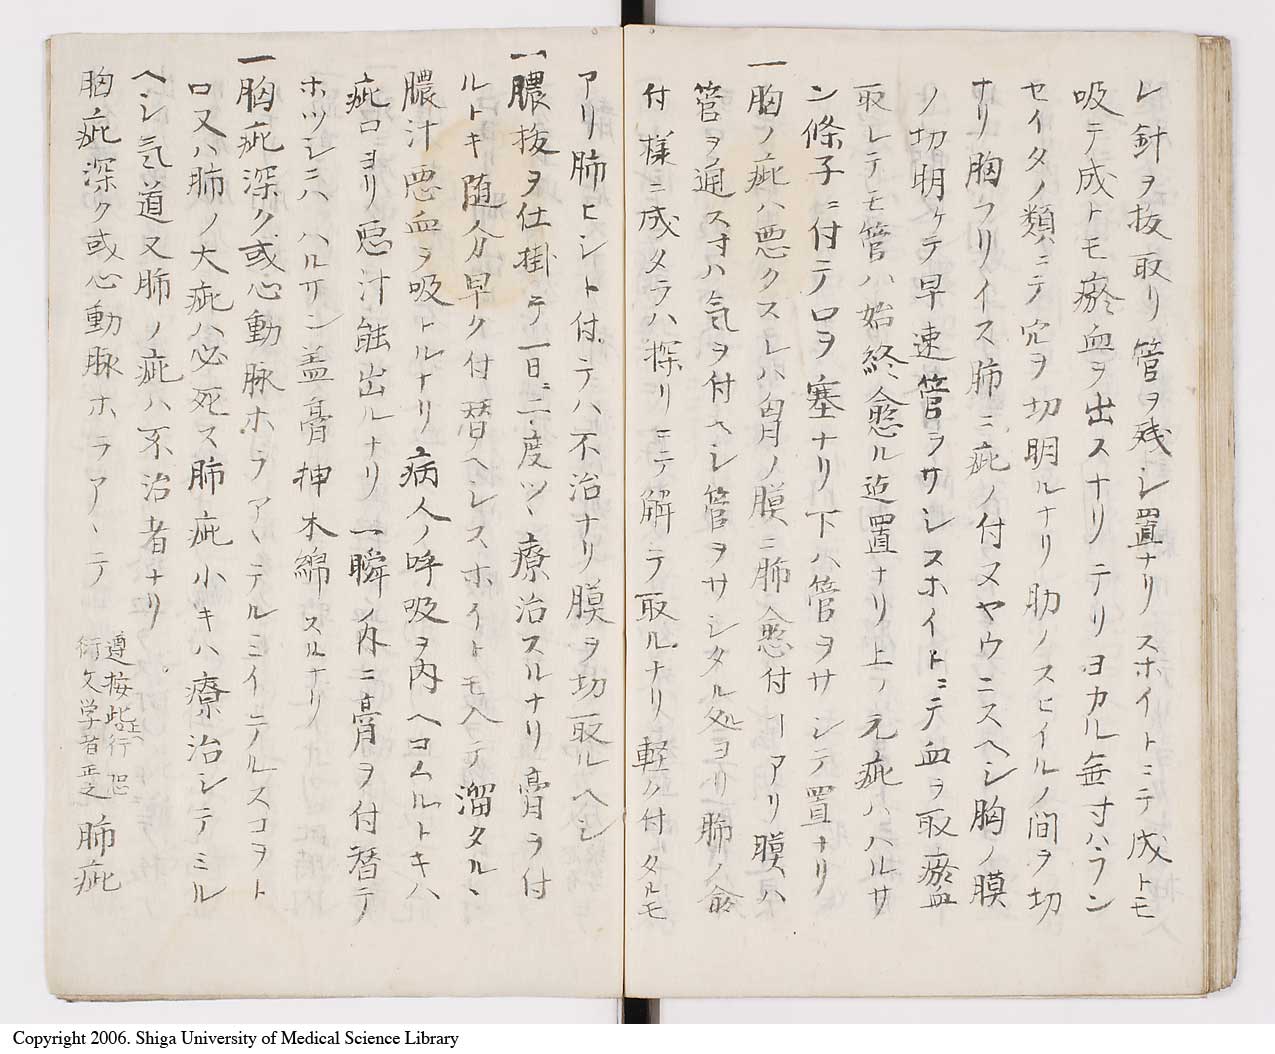 レ針ヲ抜取リ管ヲ残シ置ナリスホイトニテ成トモ
吸テ成トモ瘀血ヲ出スナリテリヨカル無寸ハラン
セイタノ類ハニテ穴ヲ切明ルナリ肋ノスヒイルノ間ヲ切
ナリ胸フリイス肺ニ疵ノ付ヌヤウニスヘシ胸ノ膜
ノ切明ケテ早速管ヲサシスホイトニテ血ヲ取瘀血
取レテモ管ハ始終愈ル迠置ナリ上ノ元疵ハハルサ
ン條子ニ付テロヲ塞ナリ下ハ管ヲサシテ置ナリ
一胸ノ疵ハ悪クスレハ肋ノ膜ニ肺愈付ヿアリ膜ハ
管ヲ通スヿハ気ヲ付ヘシ管ヲサシタル処ヨリ肺ノ愈
付様ニ成タラハ探リニテ解テ取ルナリ軽ク付タルモ
アリ肺ヒシト付テハ不治ナリ膜ヲ切取ルヘシ
一膿抜ヲ仕掛テ一日ニ二度ツヽ療治スルナリ膏ヲ付
ルトキ随分早ク付暦ヘシスホイトモ入テ溜タル
膿汁悪血ヲ吸トルナリ病人ノ呼吸ヲ内ヘコムルトキハ
疵口ヨリ悪汁能出ルナリ一瞬ノ內ニ膏ヲ付暦テ
ホツシニハハルサン盖膏押木綿スルナリ
一胸疵深ク或心動脉ホラアヽテルミイニアルスコヲト
ロ又ハ肺ノ大疵ハ必死ス肺疵小キハ療治シテミル
ヘシ気道又肺ノ疵ハ不治者ナリ
胸疵深ク或心動脉ホラアヽテ
遵按此上行恐
衍文学者正之
肺疵
Copyright 2006. Shiga University of Medical Science Library